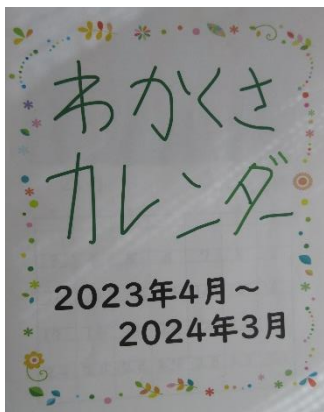 わかくさ
カレンダー
2023年4月～
2024年3月